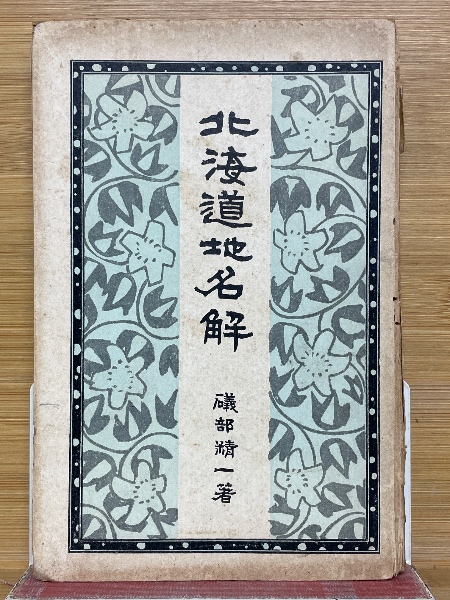 北海道地名解
磯部精一著